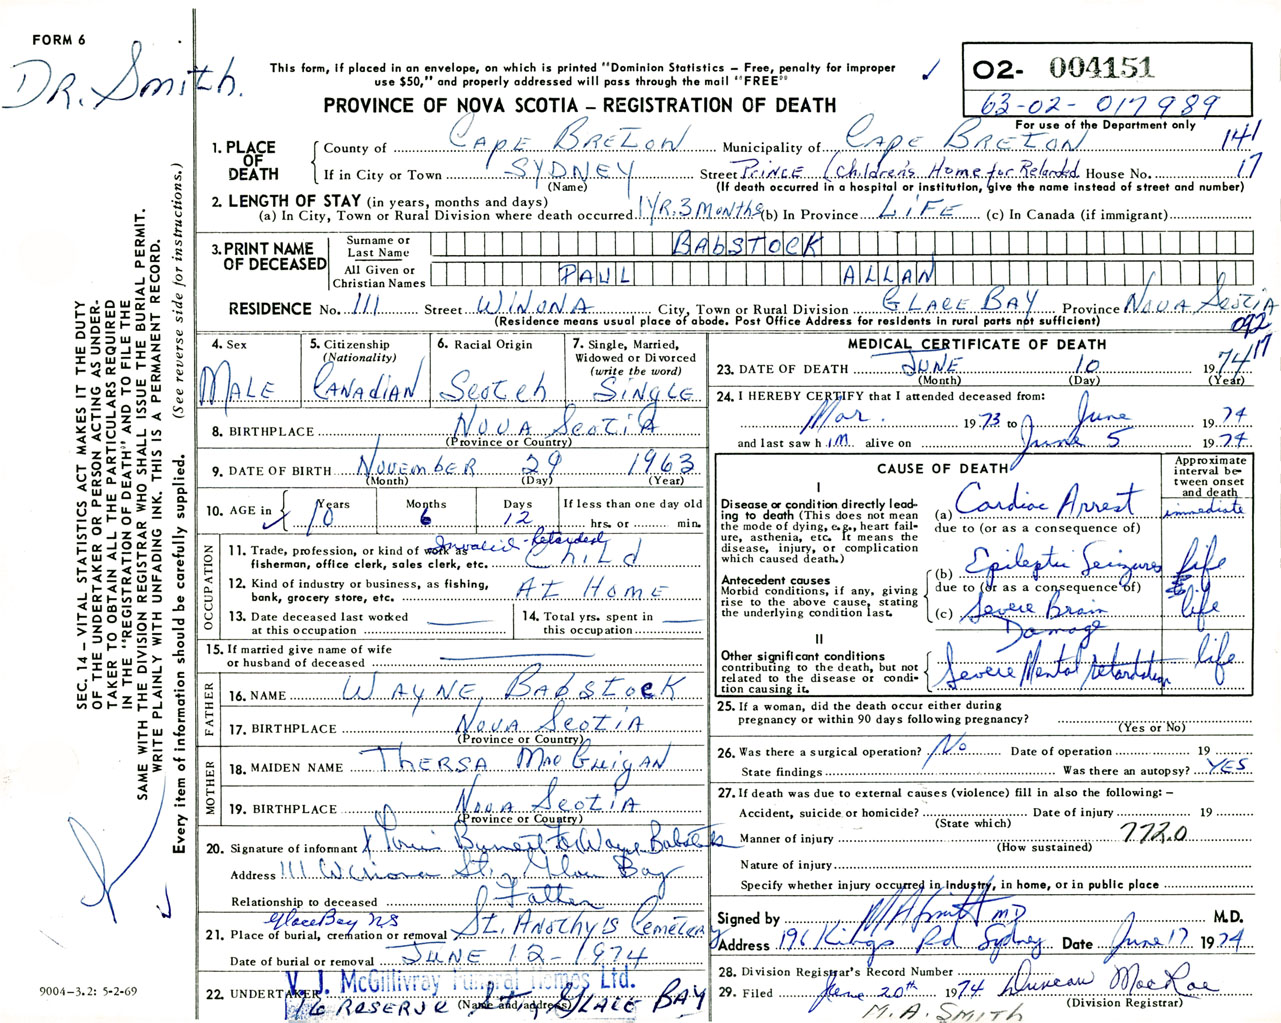 FORM 6
DR. Smith.
This form, if placed in an envelope, on which is printed "Dominion Statistics – Free, penalty for improper
use $50," and properly addressed will pass through the mail "FREE"
PROVINCE OF NOVA SCOTIA – REGISTRATION OF DEATH
02- 004151
63-02-017989
For use of the Department only
1. PLACE OF DEATH
County of CAPE BRETON Municipality of CAPE BRETON 141
If in City or Town SYDNEY Street PRINCE (Children's Home for Retarded House No. 17
(Name) (If death occurred in a hospital or institution, give the name instead of street and number)
2. LENGTH OF STAY (in years, months and days)
(a) In City, Town or Rural Division where death occurred 1 YR. 3 Months (b) In Province LIFE (c) In Canada (if immigrant)
3. PRINT NAME OF DECEASED
Surname or Last Name BABSTOCK
All Given or Christian Names PAUL ALLAN
RESIDENCE No. 111 Street WINONA City, Town or Rural Division GLACE BAY Province NOVA SCOTIA
(Residence means usual place of abode. Post Office Address for residents in rural parts not sufficient)
092
17
4. Sex
MALE
5. Citizenship (Nationality)
CANADIAN
6. Racial Origin
Scotch
7. Single, Married, Widowed or Divorced (write the word)
SINGLE
8. BIRTHPLACE NOVA SCOTIA
(Province or Country)
9. DATE OF BIRTH NOVEMBER 29 1963
(Month) (Day) (Year)
10. AGE in Years Months Days If less than one day old
10 6 12 hrs. or min.
OCCUPATION
11. Trade, profession, or kind of work as Invalid - Retarded
fisherman, office clerk, sales clerk, etc. CHILD
12. Kind of industry or business, as fishing,
bank, grocery store, etc. AT HOME
13. Date deceased last worked
at this occupation
14. Total yrs. spent in
this occupation
15. If married give name of wife
or husband of deceased
FATHER
16. NAME WAYNE BABSTOCK
17. BIRTHPLACE NOVA SCOTIA
(Province or Country)
MOTHER
18. MAIDEN NAME THERSA MacGuigan
19. BIRTHPLACE NOVA SCOTIA
(Province or Country)
20. Signature of informant Wayne Babstock
Address 111 Winona St., Glace Bay
Relationship to deceased Father
Glace Bay NS
21. Place of burial, cremation or removal St. Anothys Cemetary
Date of burial or removal JUNE 12 - 1974
V. J. McGillivray Funeral Homes Ltd.
22. UNDERTAKER 16 RESERVE St., GLACE BAY
(Name and address)
MEDICAL CERTIFICATE OF DEATH
23. DATE OF DEATH JUNE 10 1974
(Month) (Day) (Year)
24. I HEREBY CERTIFY that I attended deceased from:
Mar. 1973 to June 1974
and last saw him alive on June 5 1974
CAUSE OF DEATH
Approximate interval between onset and death
I
Disease or condition directly leading to death (This does not mean the mode of dying, e.g., heart failure, asthenia, etc. It means the disease, injury, or complication which caused death.)
(a) Cardiac Arrest immediate
due to (or as a consequence of)
Antecedent causes
Morbid conditions, if any, giving rise to the above cause, stating the underlying condition last.
(b) Epileptic Seizures life
due to (or as a consequence of)
(c) Severe Brain Damage life
II
Other significant conditions
contributing to the death, but not related to the disease or condition causing it.
Severe Mental retardation life
25. If a woman, did the death occur either during
pregnancy or within 90 days following pregnancy?
(Yes or No)
26. Was there a surgical operation? No Date of operation 19
State findings Was there an autopsy? YES
27. If death was due to external causes (violence) fill in also the following: –
Accident, suicide or homicide? Date of injury 19
(State which)
Manner of injury 772.0
(How sustained)
Nature of injury
Specify whether injury occurred in industry, in home, or in public place
Signed by M A Smith MD M.D.
Address 196 Kings Rd Sydney Date June 17 1974
28. Division Registrar's Record Number
29. Filed June 20th 1974 Duncan MacRae
(Division Registrar)
M. A. SMITH
SEC. 14 – VITAL STATISTICS ACT MAKES IT THE DUTY
OF THE UNDERTAKER OR PERSON ACTING AS UNDER-
TAKER TO OBTAIN ALL THE PARTICULARS REQUIRED
IN THE "REGISTRATION OF DEATH" AND TO FILE THE
SAME WITH THE DIVISION REGISTRAR WHO SHALL ISSUE THE BURIAL PERMIT.
WRITE PLAINLY WITH UNFADING INK. THIS IS A PERMANENT RECORD.
Every item of information should be carefully supplied. (See reverse side for instructions.)
9004-3.2: 5-2-69